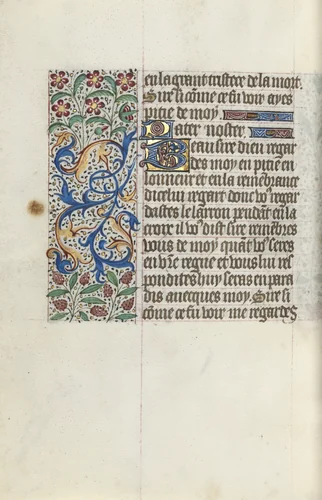 en la grant tristece de la mort.
Sire si cõme ce fu voir ayes
pitie de moy.
Pater noster.
Beau sire dieu regar
des moy en pitie en
lonneur et en la remẽbrance
dicelui regart donc vo⁹ regar
dastes le larron pendãt en la
croix il vo⁹ dist sire remẽbres
vous de moy quãt vo⁹ seres
en vr̃e regne et vous lui res
pondistes huy seras en para
dis auecques moy. Sire si
cõme ce fu voir me regardes